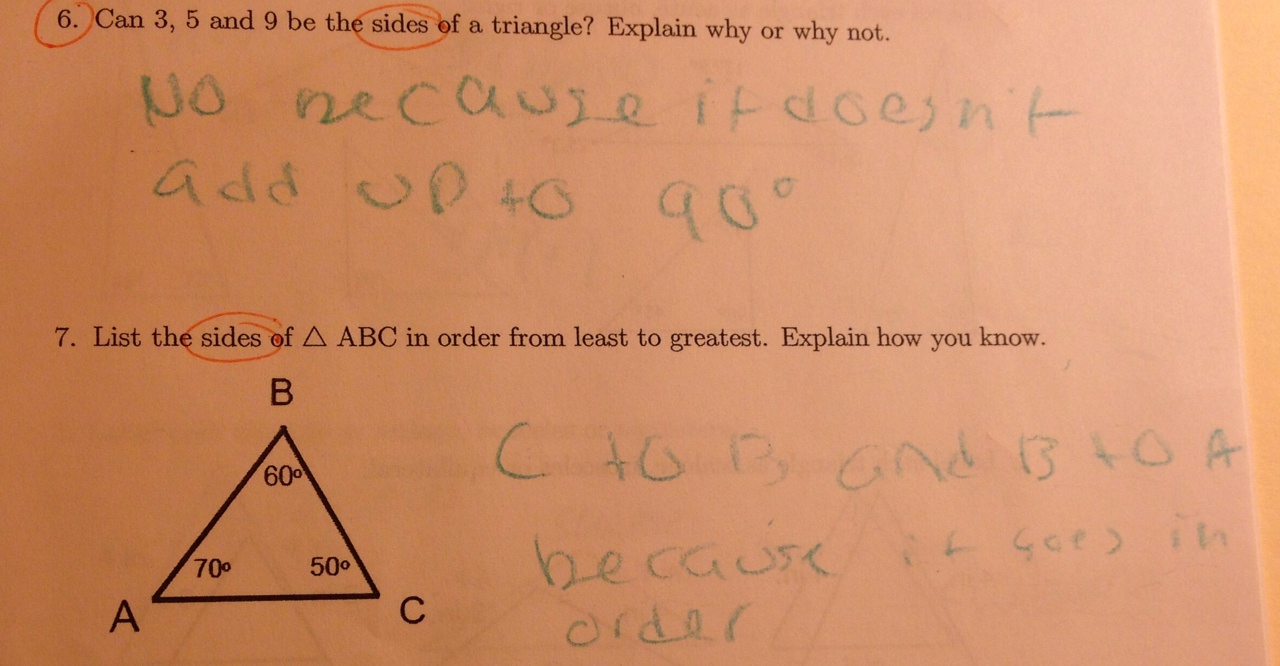 6. Can 3, 5 and 9 be the sides of a triangle? Explain why or why not.
No because it doesn't
add up to 90°
7. List the sides of △ ABC in order from least to greatest. Explain how you know.
B
60º
70º
50º
A
C
C to B, and B to A
because it goes in
order